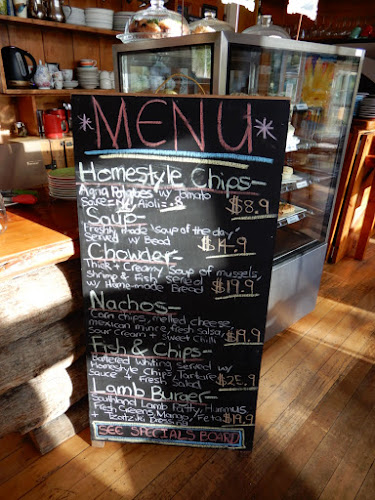 MENU
Homestyle Chips-
Agria Potatoes w/ Tomato
Sauce = Aioli = .8
$8.9
Soup-
Freshly made 'soup of the day'
Served w/ Bead
$14.9
Chowder-
Thick + Creamy Soup of mussels,
shrimp & Fish, served
w/ Home-made Bread
$19.9
Nachos-
Corn chips, melted cheese
mexican mince, fresh Salsa,
Sour Cream + Sweet Chilli
$19.9
Fish & Chips-
Battered Whiting served w/
Homestyle Chips, Tartare
Sauce + Fresh Salad
$25.9
Lamb Burger-
Southland Lamb Patty, Hummus,
Fresh Greens, Mango, Feta
+ Tzatziki Dressing
$19.9
SEE SPECIALS BOARD